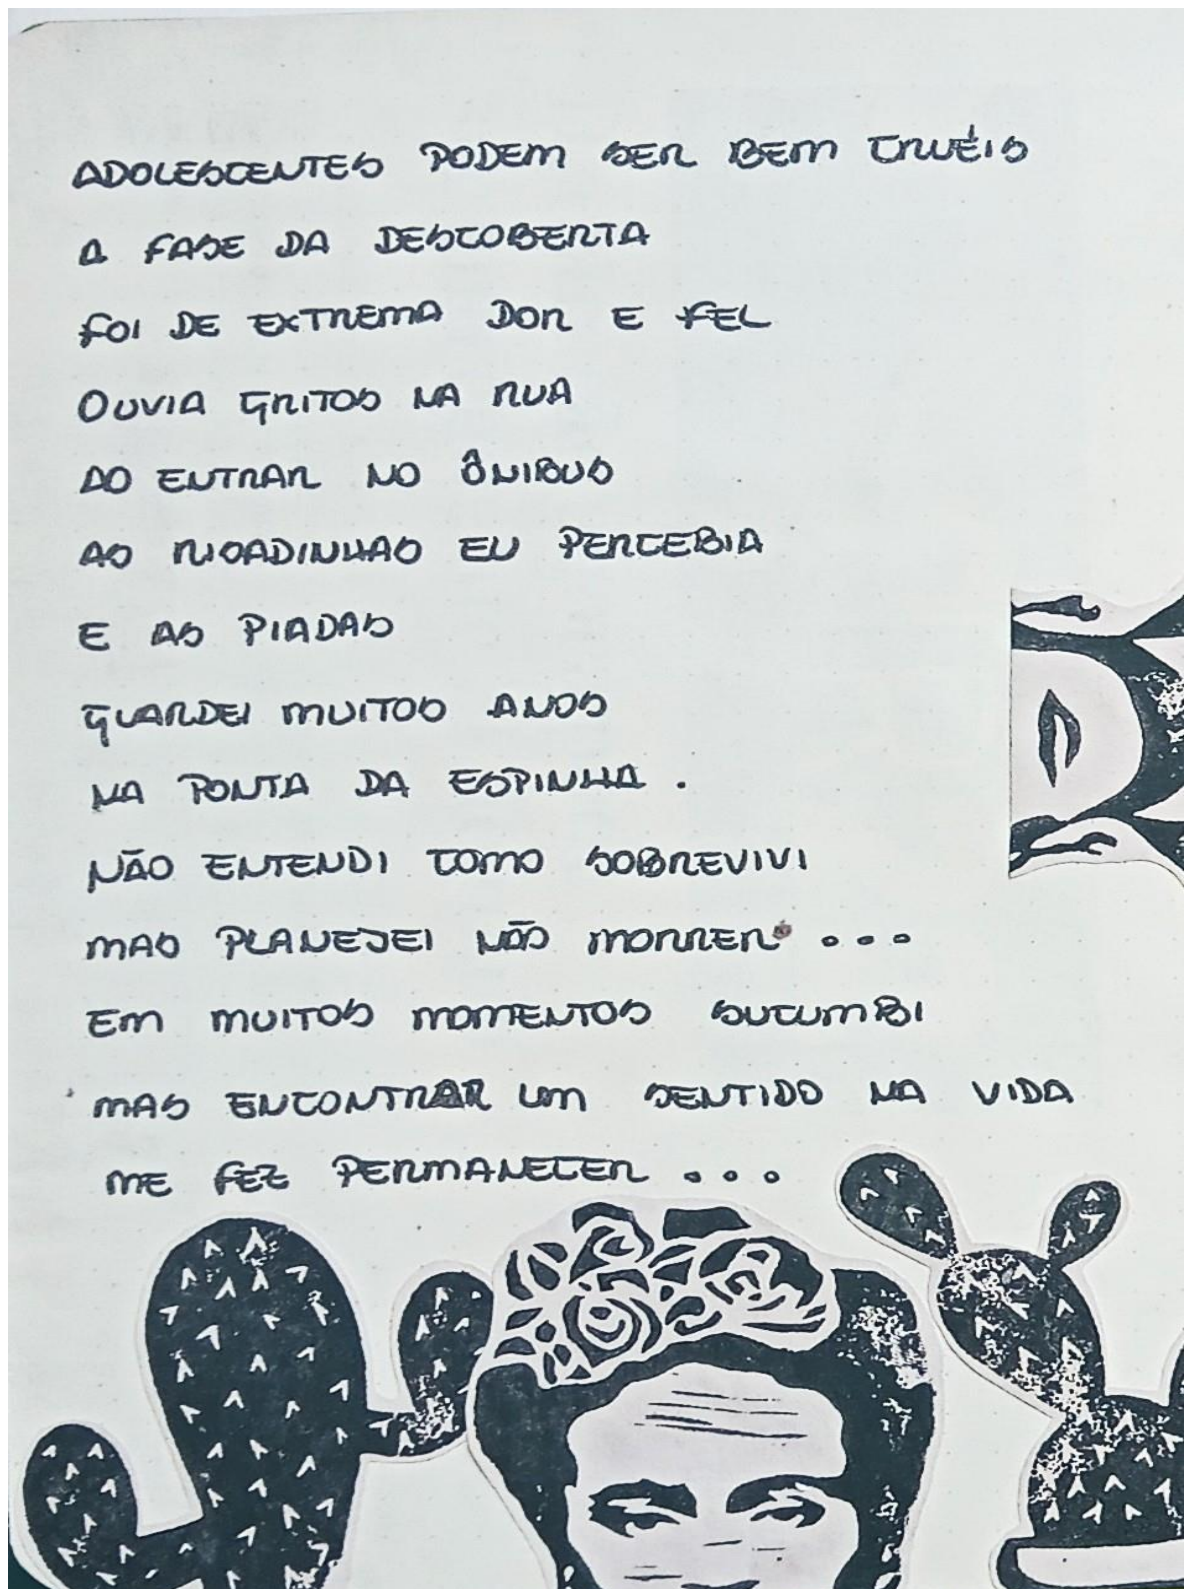 ADOLESCENTES PODEM SER BEM CRUÉIS
A FASE DA DESCOBERTA
FOI DE EXTREMA DOR E FEL
OUVIA GRITOS NA RUA
AO ENTRAR NO ÔNIBUS
AS RISADINHAS EU PERCEBIA
E AS PIADAS
GUARDEI MUITOS ANOS
NA PONTA DA ESPINHA .
NÃO ENTENDI COMO SOBREVIVI
MAS PLANEJEI NÃO MORRER ...
EM MUITOS MOMENTOS SUCUMBI
MAS ENCONTRAR UM SENTIDO NA VIDA
ME FEZ PERMANECER ...